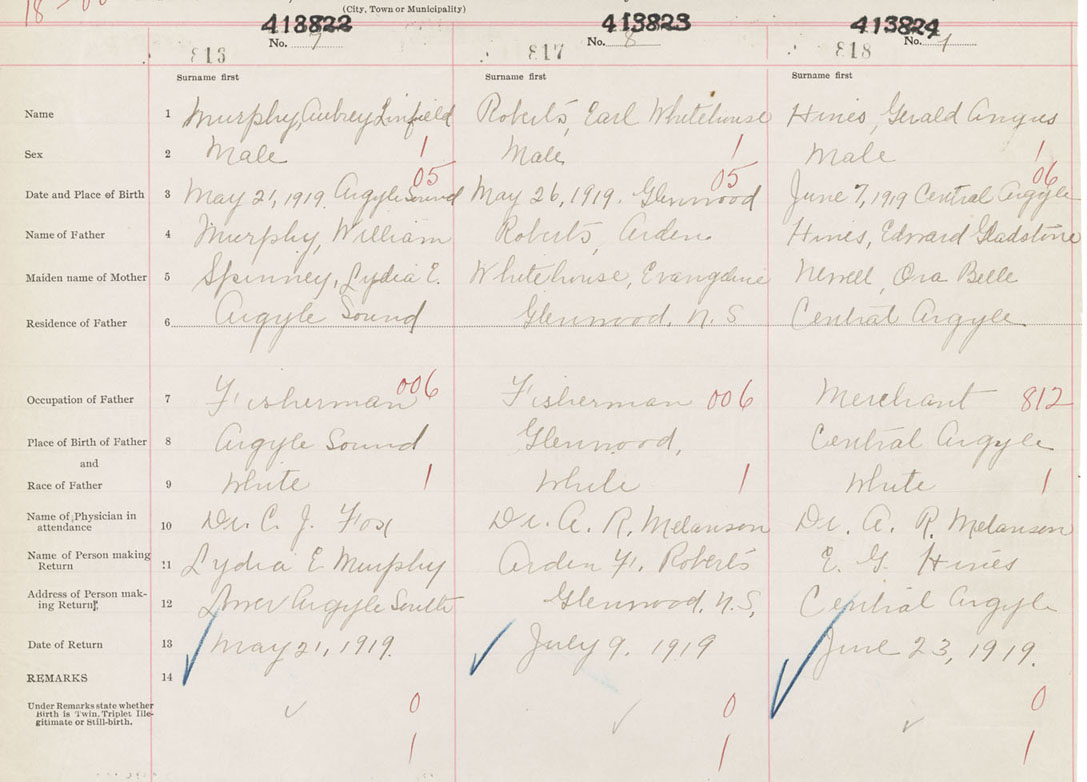 (City, Town or Municipality)
413822 413823 413824
No. 7 No. 8 No. 1
813 817 818
Surname first Surname first Surname first
Name 1 Murphy, Aubrey Linfield Roberts, Earl Whitehouse Hines, Gerald Angus
Sex 2 Male 1 Male 1 Male 1
05 05 06
Date and Place of Birth 3 May 21, 1919. Argyle Sound May 26, 1919. Glenwood June 7, 1919 Central Argyle
Name of Father 4 Murphy, William Roberts, Arden Hines, Edward Gladstone
Maiden name of Mother 5 Spinney, Lydia E. Whitehouse, Evangeline Newell, Ora Belle
Residence of Father 6 Argyle Sound Glenwood, N.S Central Argyle
Occupation of Father 7 Fisherman 006 Fisherman 006 Merchant 812
Place of Birth of Father 8 Argyle Sound Glenwood, Central Argyle
and
Race of Father 9 White 1 White 1 White 1
Name of Physician in
attendance 10 Dr. C. J. Fox Dr. A. R. Melanson Dr. A. R. Melanson
Name of Person making
Return 11 Lydia E Murphy Arden F. Roberts E. G. Hines
Address of Person mak-
ing Return 12 Lower Argyle South Glenwood, N.S, Central Argyle
Date of Return 13 May 21, 1919. July 9. 1919 June 23, 1919.
REMARKS 14
Under Remarks state whether
Birth is Twin, Triplet Ille-
gitimate or Still-birth.
0 0 0
1 1 1